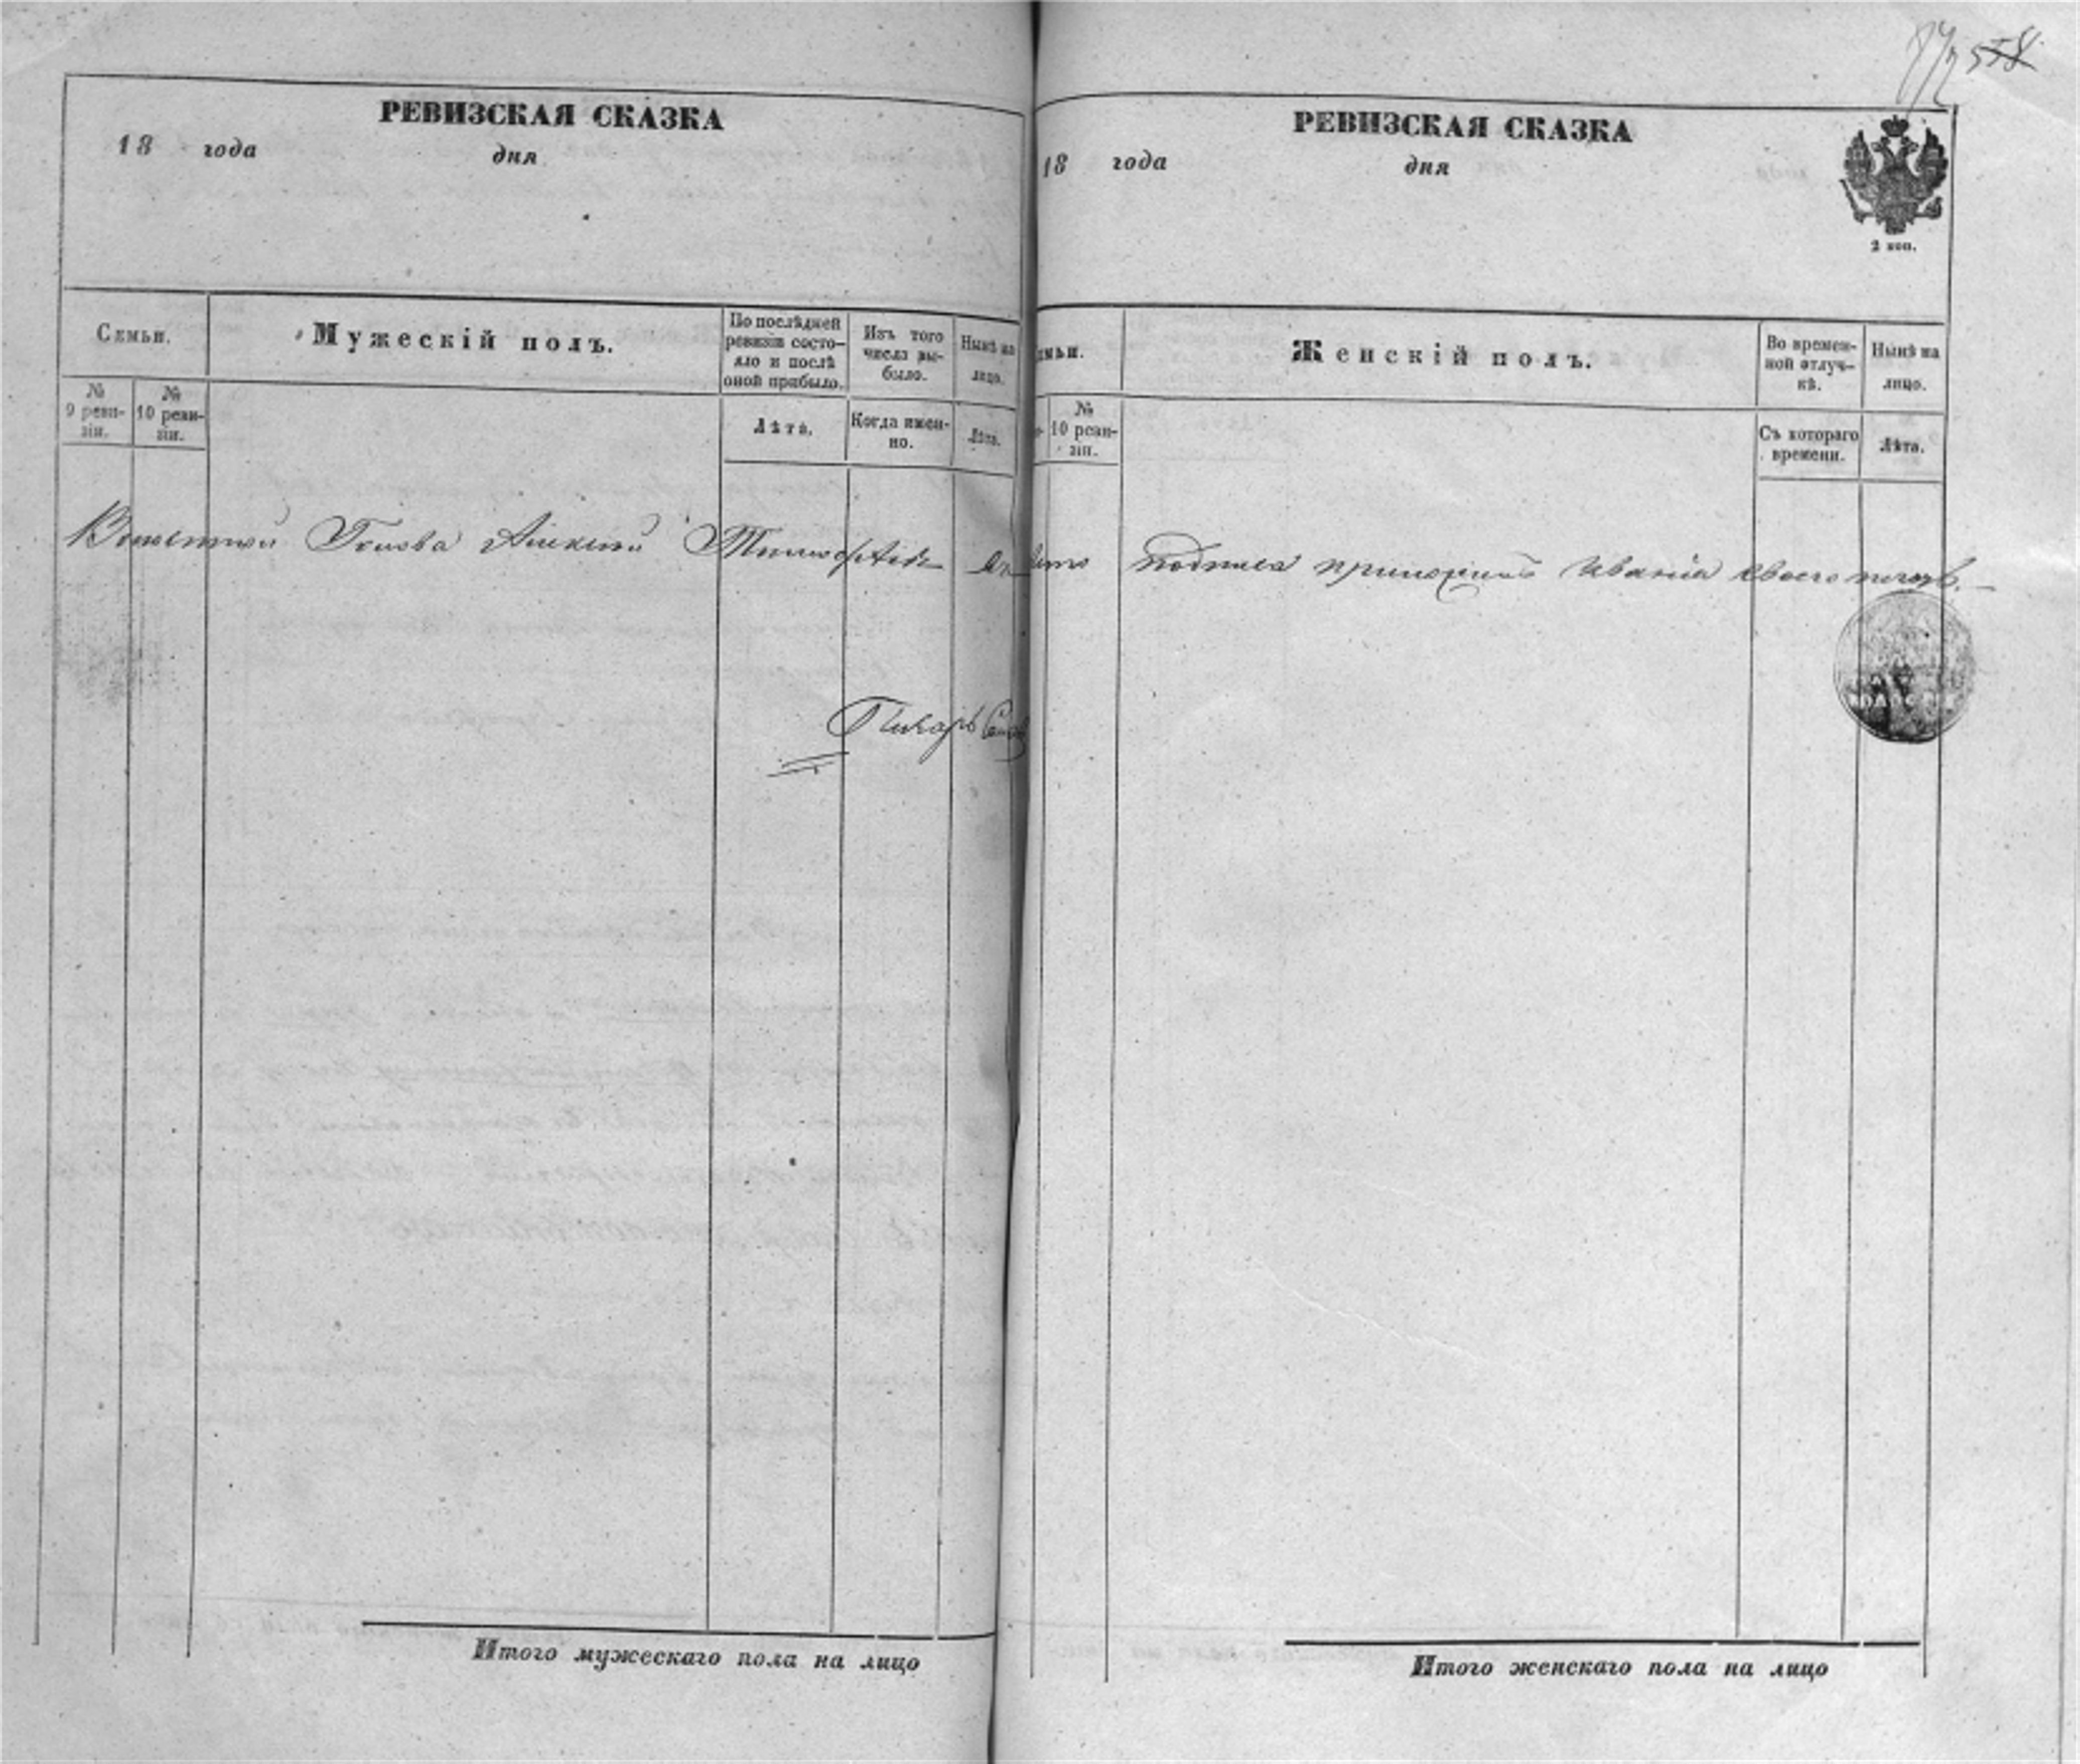 558
РЕВИЗСКАЯ СКАЗКА
18 года дня
Семьи.
Мужескій полъ.
По послѣдней ревизіи состо-
яло и послѣ
оной прибыло.
Изъ того
числа вы-
было.
Нынѣ на
лицо.
№
9 реви-
зіи.
№
10 реви-
зіи.
Лѣта.
Когда имен-
но.
Лѣта.
Волостной Голова Алексей
Писарь
Итого мужескаго пола на лицо
РЕВИЗСКАЯ СКАЗКА
18 года дня
2 коп.
емьи.
Женскій полъ.
Во времен-
ной отлуч-
кѣ.
Нынѣ на
лицо.
№
10 реви-
зіи.
Съ котораго
времени.
Лѣта.
подписа приложилъ своего
Итого женскаго пола на лицо